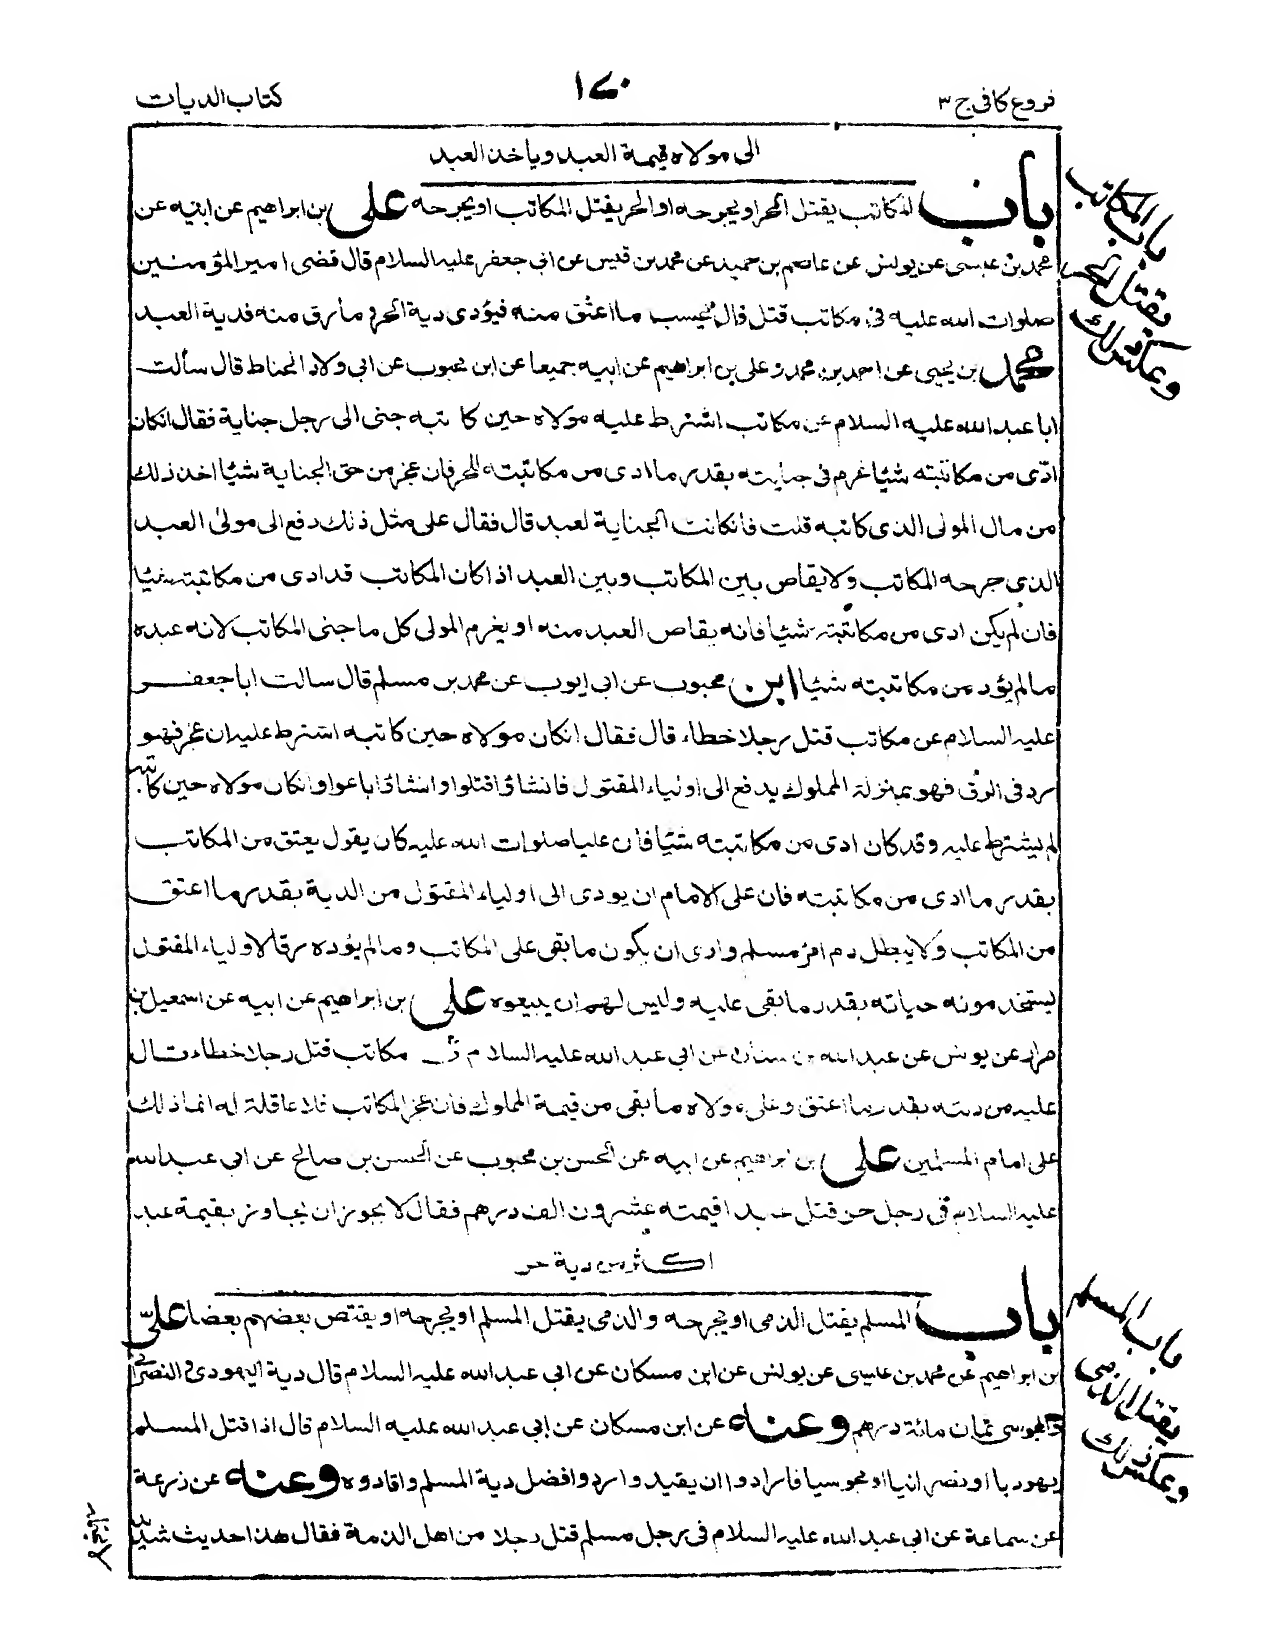 فروع كافى ج ٣
١٧٠
كتاب الديات
الى مولاه قيمة العبد وياخذ العبد
باب المكاتب يقتل الحر او يجرحه او الحر يقتل المكاتب او يجرحه على بن ابراهيم عن ابيه عن
محمد بن عيسى عن يونس عن عاصم بن حميد عن محمد بن قيس عن ابى جعفر عليه السلام قال قضى امير المؤمنين
صلوات الله عليه فى مكاتب قتل قال يحسب ما اعتق منه فيؤدى دية الحر وما رق منه فدية العبد
محمد بن يحيى عن احمد بن محمد وعلى بن ابراهيم عن ابيه جميعا عن ابن محبوب عن ابى ولاد الحناط قال سألت
ابا عبد الله عليه السلام عن مكاتب اشترط عليه مولاه حين كاتبه جنى الى رجل جناية فقال انكان
ادّى من مكاتبته شيئا غرم فى جنايته بقدر ما ادى من مكاتبته للحر فان عجز من حق الجناية شيئا اخذ ذلك
من مال المولى الذى كاتبه قلت فانكانت الجناية لعبد قال فقال على مثل ذلك دفع الى مولى العبد
الذى جرحه المكاتب ولا يقاص بين المكاتب وبين العبد اذا كان المكاتب قد ادى من مكاتبته شيئا
فان لم يكن ادى من مكاتبته شيئا فانه يقاص العبد منه او يغرم المولى كل ما جنى المكاتب لانه عبده
ما لم يؤد من مكاتبته شيئا ابن محبوب عن ابى ايوب عن محمد بن مسلم قال سالت ابا جعفر
عليه السلام عن مكاتب قتل رجلا خطاء قال فقال انكان مولاه حين كاتبه اشترط عليه ان عجز فهو
رد فى الرق فهو بمنزلة المملوك يدفع الى اولياء المقتول فانشاؤا قتلوا وانشاؤا باعوا وانكان مولاه حين كاتبه
لم يشترط عليه وقد كان ادى من مكاتبته شيئا فان عليا صلوات الله عليه كان يقول يعتق من المكاتب
بقدر ما ادى من مكاتبته فان على الامام ان يودى الى اولياء المقتول من الدية بقدر ما اعتق
من المكاتب ولا يبطل دم امرء مسلم وارى ان يكون ما بقى على المكاتب وما لم يؤده رقا لاولياء المقتول
يستخدمونه حياته بقدر ما بقى عليه وليس لهم ان يبيعوه على بن ابراهيم عن ابيه عن اسمعيل بن
مرار عن يونس عن عبد الله بن سنان عن ابى عبد الله عليه السلام فى مكاتب قتل رجلا خطاء قال
عليه من ديته بقدر ما اعتق وعلى مولاه ما بقى من قيمة المملوك فان عجز المكاتب فلا عاقلة له انما ذلك
على امام المسلمين على بن ابراهيم عن ابيه عن الحسن بن محبوب عن الحسن بن صالح عن ابى عبد الله
عليه السلام فى رجل حر قتل عبدا قيمته عشرون الف درهم فقال لا يجوز ان يجاوز بقيمة عبد
اكثر من دية حر
باب المسلم يقتل الذمى او يجرحه والذمى يقتل المسلم او يجرحه او يقتص بعضهم بعضا علىّ
بن ابراهيم عن محمد بن عيسى عن يونس عن ابن مسكان عن ابى عبد الله عليه السلام قال دية اليهودى والنصرانى
والمجوسى ثمان مائة درهم وعنه عن ابن مسكان عن ابى عبد الله عليه السلام قال اذا قتل المسلم
يهوديا او نصرانيا او مجوسيا فارادوا ان يقيدوا ردوا فضل دية المسلم واقادوه وعنه عن زرعة
عن سماعة عن ابى عبد الله عليه السلام فى رجل مسلم قتل رجلا من اهل الذمة فقال هذا حديث شديد
باب المكاتب
يقتل الحر
وعكس ذلك
باب المسلم
يقتل الذمى
وعكس ذلك